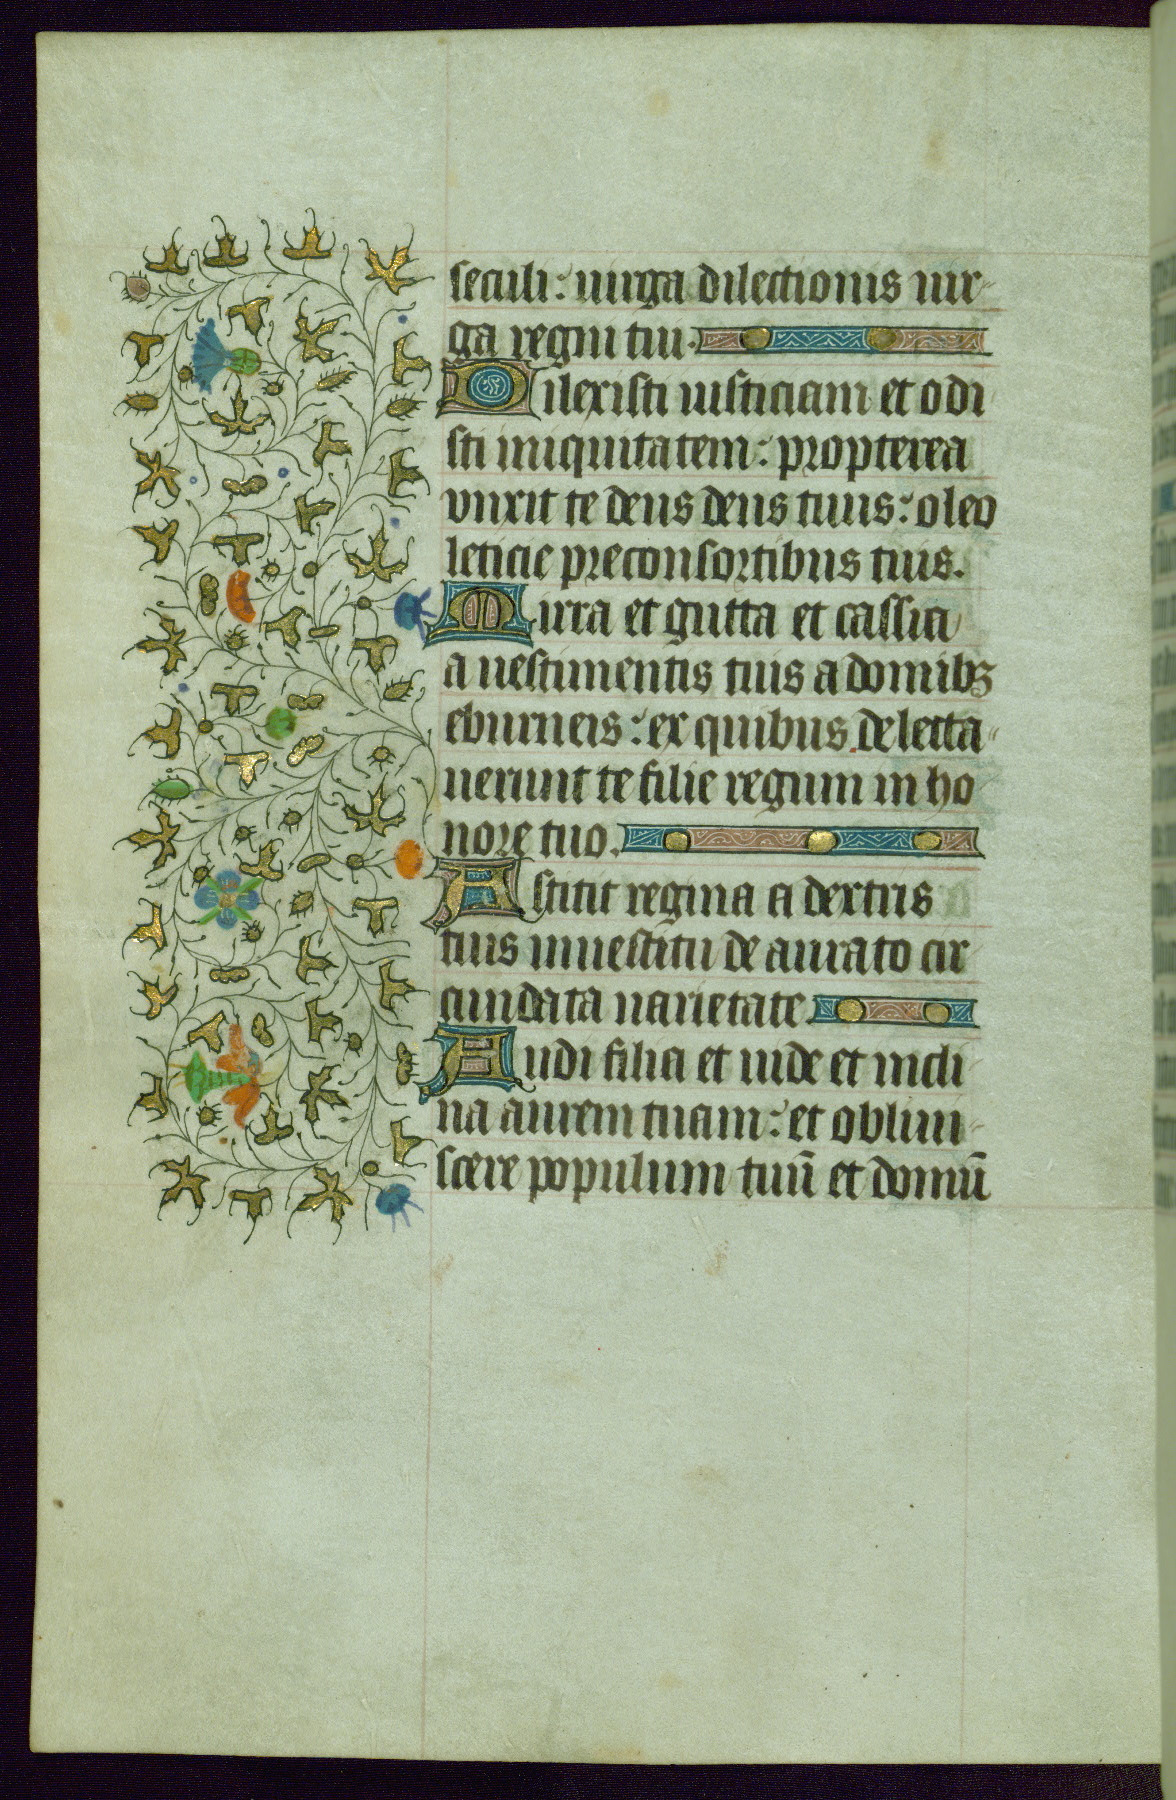 seculi: uirga dilectionis uir-
ga regni tui.
Dilexisti iusticiam et odi
sti iniquitatem: propterea
vnxit te deus deus tuus: oleo
leticie preconsortibus tuis.
Mirra et gutta et cassia
a uestimentis tuis a domibꝫ
eburneis: ex quibus delecta-
uerunt te filie regum in ho
nore tuo.
Astitit regina a dextris
tuis inuestitu de aurato cir
cundata uarietate
Audi filia et uide et incli
na aurem tuam: et obliui-
scere populum tuū et domū